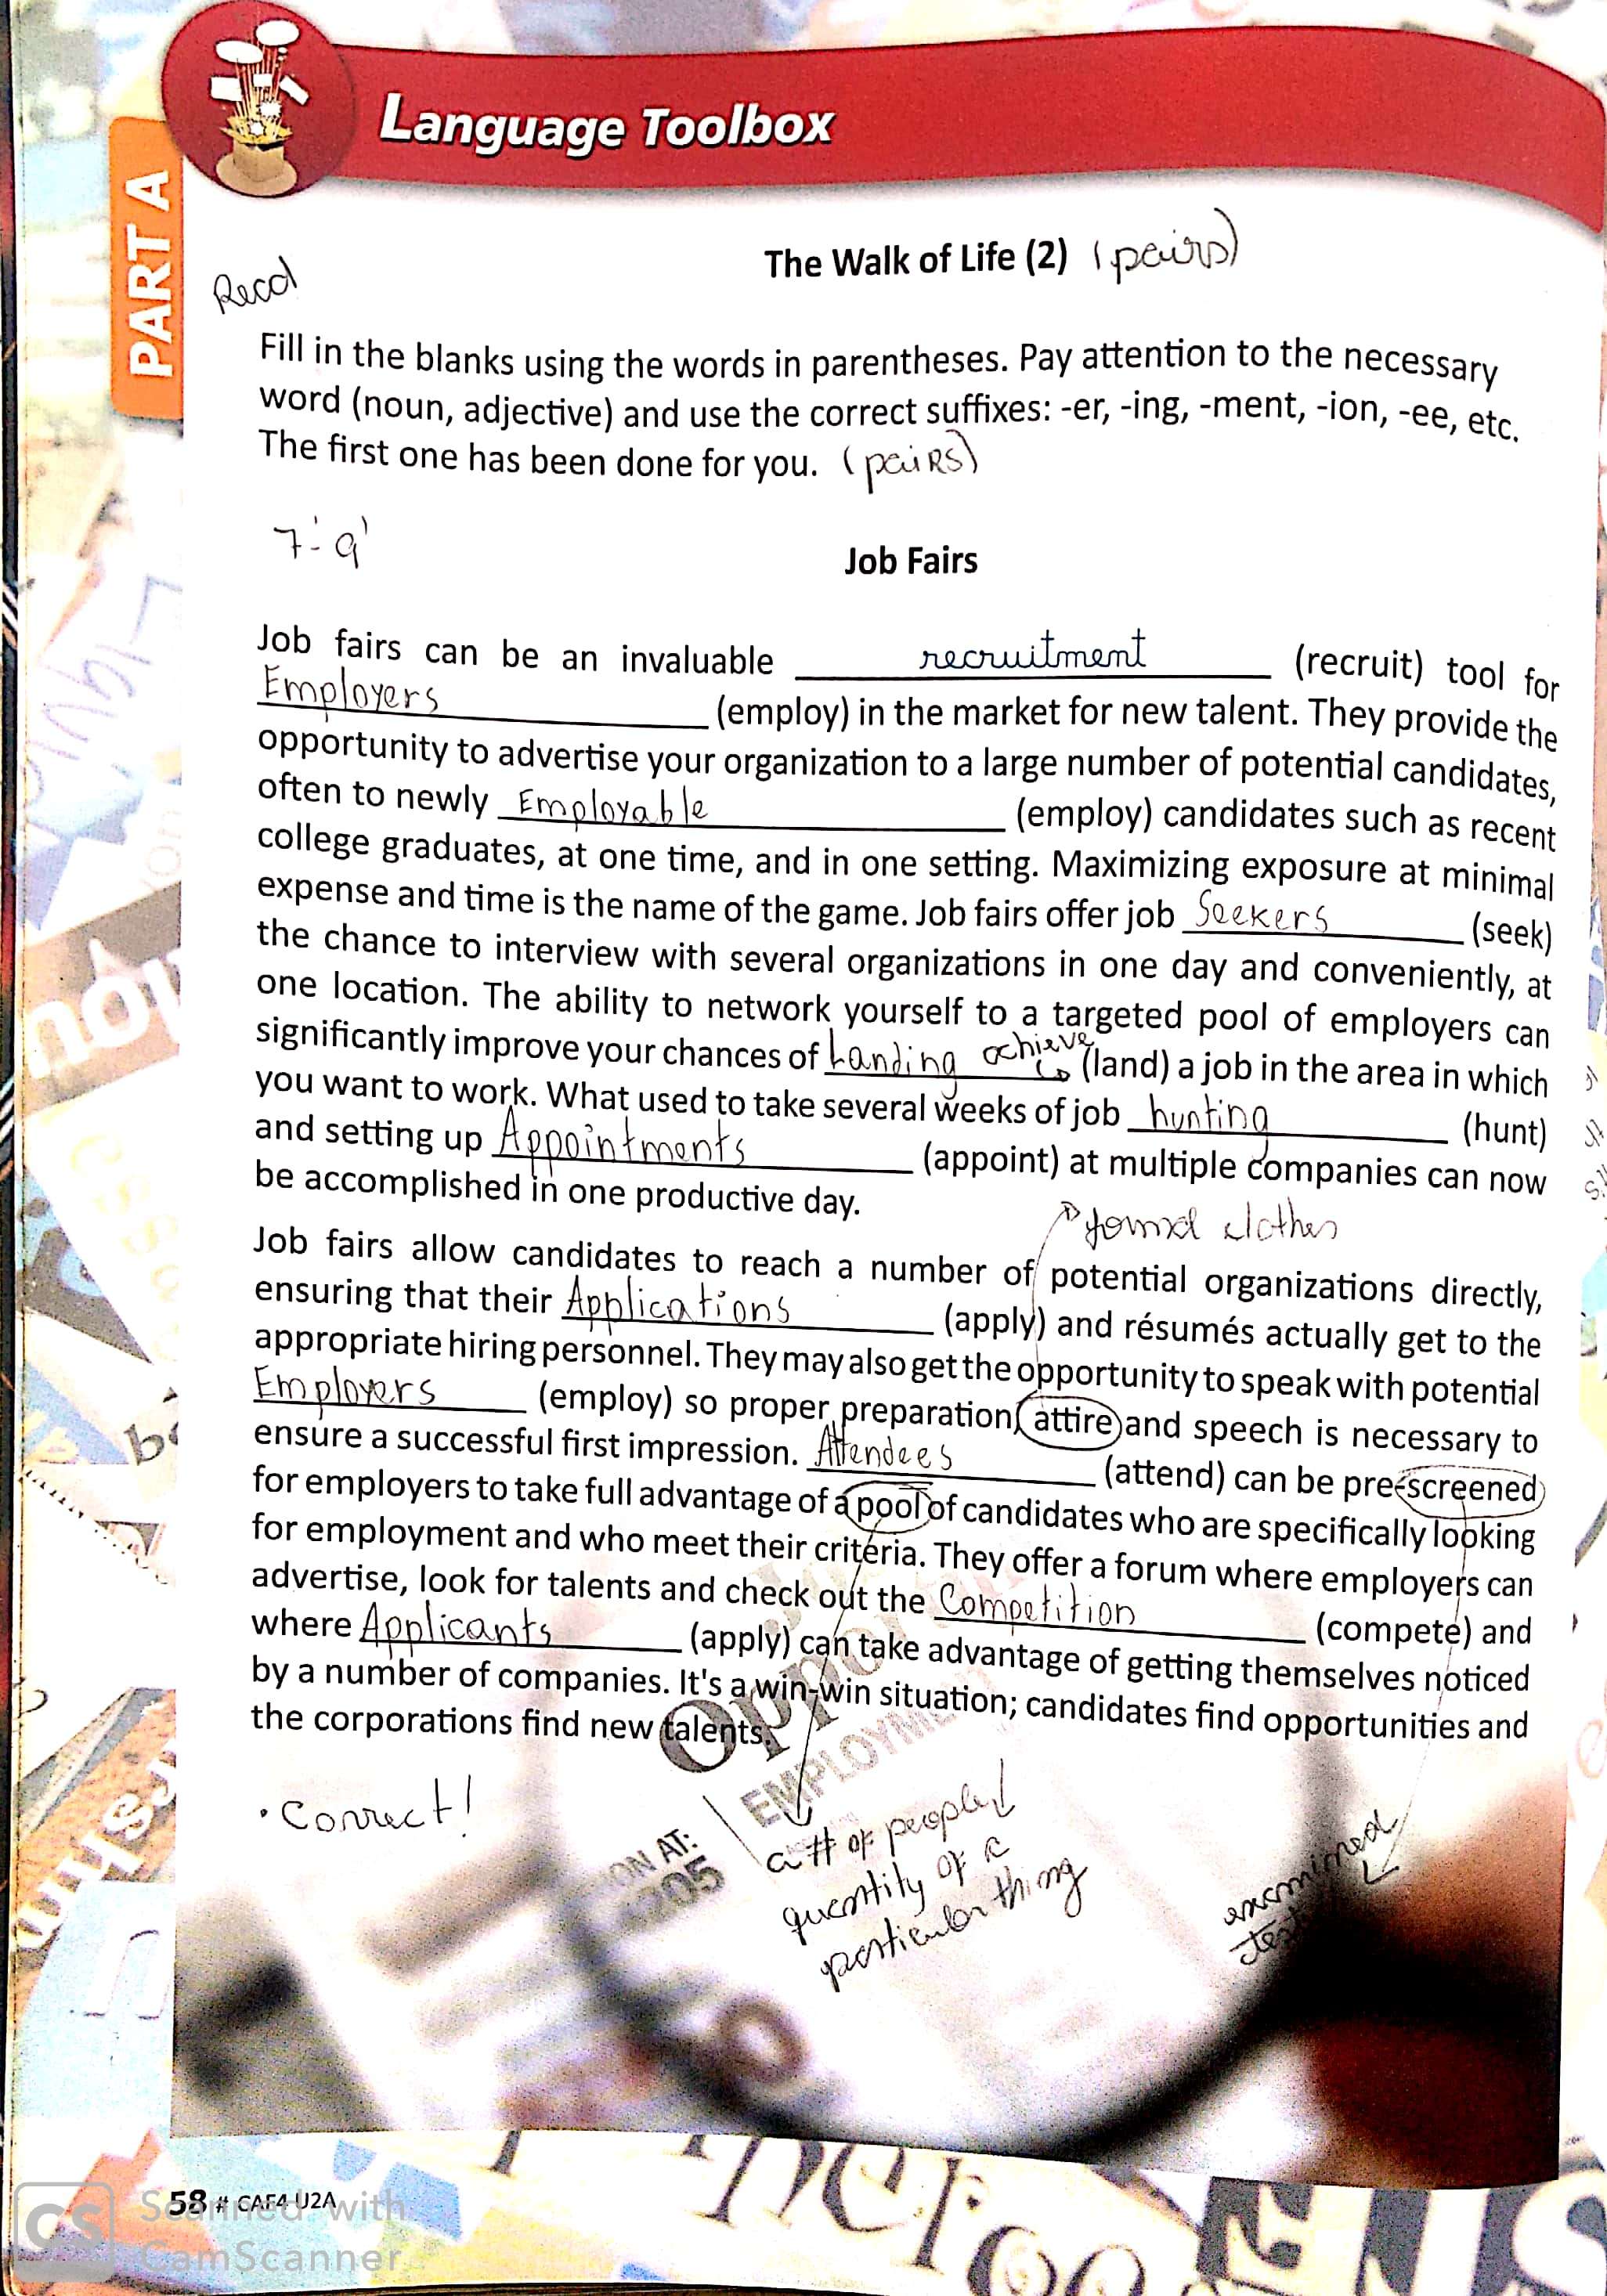 Language Toolbox
PART A
The Walk of Life (2) (pairs)
Read
Fill in the blanks using the words in parentheses. Pay attention to the necessary
word (noun, adjective) and use the correct suffixes: -er, -ing, -ment, -ion, -ee, etc.
The first one has been done for you. (pairs)
7'- 9'
Job Fairs
Job fairs can be an invaluable recruitment (recruit) tool for
Employers (employ) in the market for new talent. They provide the
opportunity to advertise your organization to a large number of potential candidates,
often to newly Employable (employ) candidates such as recent
college graduates, at one time, and in one setting. Maximizing exposure at minimal
expense and time is the name of the game. Job fairs offer job Seekers (seek)
the chance to interview with several organizations in one day and conveniently, at
one location. The ability to network yourself to a targeted pool of employers can
significantly improve your chances of Landing achieve (land) a job in the area in which
you want to work. What used to take several weeks of job hunting (hunt)
and setting up Appointments (appoint) at multiple companies can now
be accomplished in one productive day.
formal clothes
Job fairs allow candidates to reach a number of potential organizations directly,
ensuring that their Applications (apply) and résumés actually get to the
appropriate hiring personnel. They may also get the opportunity to speak with potential
Employers (employ) so proper preparation, attire and speech is necessary to
ensure a successful first impression. Attendees (attend) can be pre-screened
for employers to take full advantage of a pool of candidates who are specifically looking
for employment and who meet their criteria. They offer a forum where employers can
advertise, look for talents and check out the Competition (compete) and
where Applicants (apply) can take advantage of getting themselves noticed
by a number of companies. It's a win-win situation; candidates find opportunities and
the corporations find new talents.
• Correct!
EMPLOYMENT
ON AT:
205
a # of people/
quantity of a
particular thing
examined
58 # CAE4 U2A
CS Scanned with
CamScanner